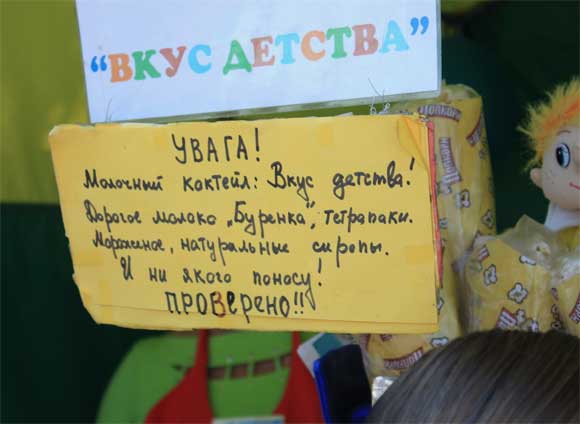 "ВКУС ДЕТСТВА"
УВАГА!
Молочный коктейл: Вкус детства!
Дорогое молоко „Буренка", тетрапаки.
Мороженое, натуральные сиропы.
И ни якого поносу!
ПРОВЕРЕНО!!